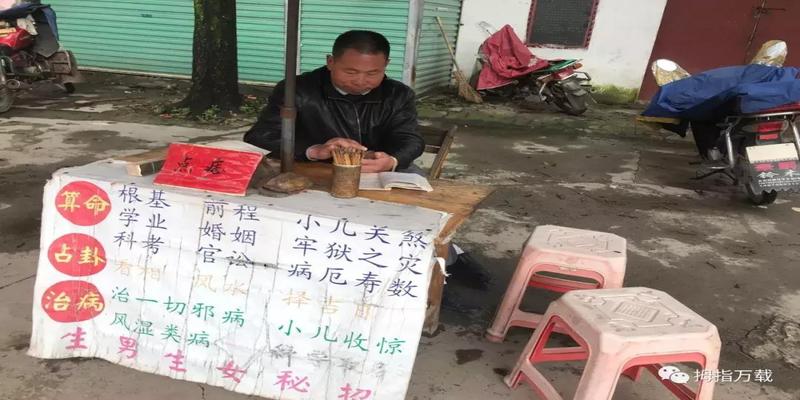 点痣
算命
占卦
治病
根基 前程 小儿关煞
学业 婚姻 牢狱之灾
科考 官讼 病厄寿数
看相 风水 择吉日
治一切邪病
风湿类病 小儿收惊
科学取名
生男生女秘招
拇指万载